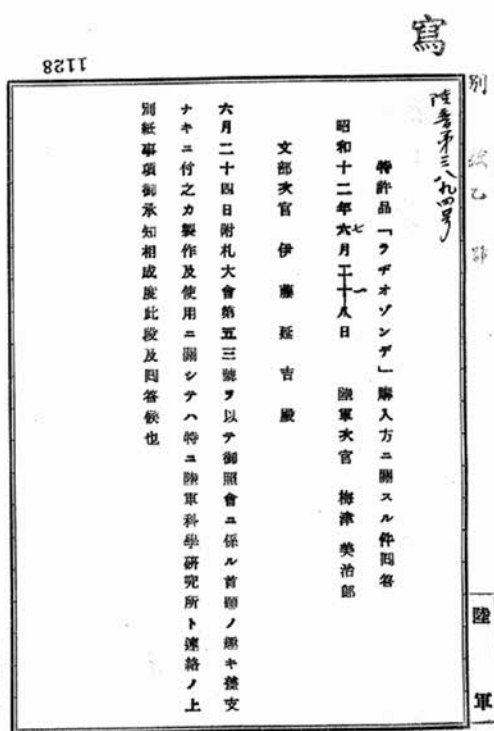 寫
1128
陸普第三八九四号
特許品「ラヂオゾンデ」購入方ニ關スル件囘答
昭和十二年六七月二十八一日 陸軍次官 梅津美治郎
文部次官 伊藤延吉殿
六月二十四日附札大會第五三號ヲ以テ御照會ニ係ル首題ノ趣キ差支
ナキニ付之カ製作及使用ニ關シテハ特ニ陸軍科學研究所ト連絡ノ上
別紙事項御承知相成度此段及囘答候也
別 乙
陸軍